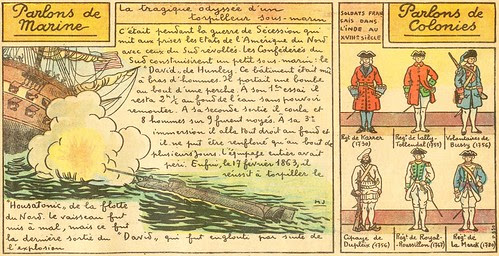 Parlons de
Marine
La tragique odyssée d'un
torpilleur sous-marin
C'était pendant la guerre de Sécession qui
mit aux prises les Etats de l'Amérique du Nord
avec ceux du Sud révoltés. Les Confédérés du
Sud construisirent un petit sous-marin: le
"David" de Hunley. Ce bâtiment était mû
à bras d'hommes. Il portait une bombe
au bout d'une perche. A son 1er essai il
resta 2h ½ au fond de l'eau sans pouvoir
remonter. A sa seconde sortie il coula et
8 hommes sur 9 furent noyés. A sa 3e
immersion il alla tout droit au fond et
il ne put être renfloué qu'au bout de
plusieurs jours. L'équipage entier avait
péri. Enfin, le 17 février 1863, il
réussit à torpiller le
"Housatonic" de la flotte
du Nord. Le vaisseau fut
mis à mal, mais ce fut
la dernière sortie du "David", qui fut englouti par suite de
l'explosion
SOLDATS FRAN-
ÇAIS DANS
L'INDE AU
XVIIIe SIÈCLE
Parlons de
Colonies
Rgt de Karrer
(1730)
Régt de Lally-
Tollendal
Volontaires de
Bussy (1756)
Cipaye de
Dupleix (1756)
Régt de Royal-
Roussillon
Régt de
La Marck